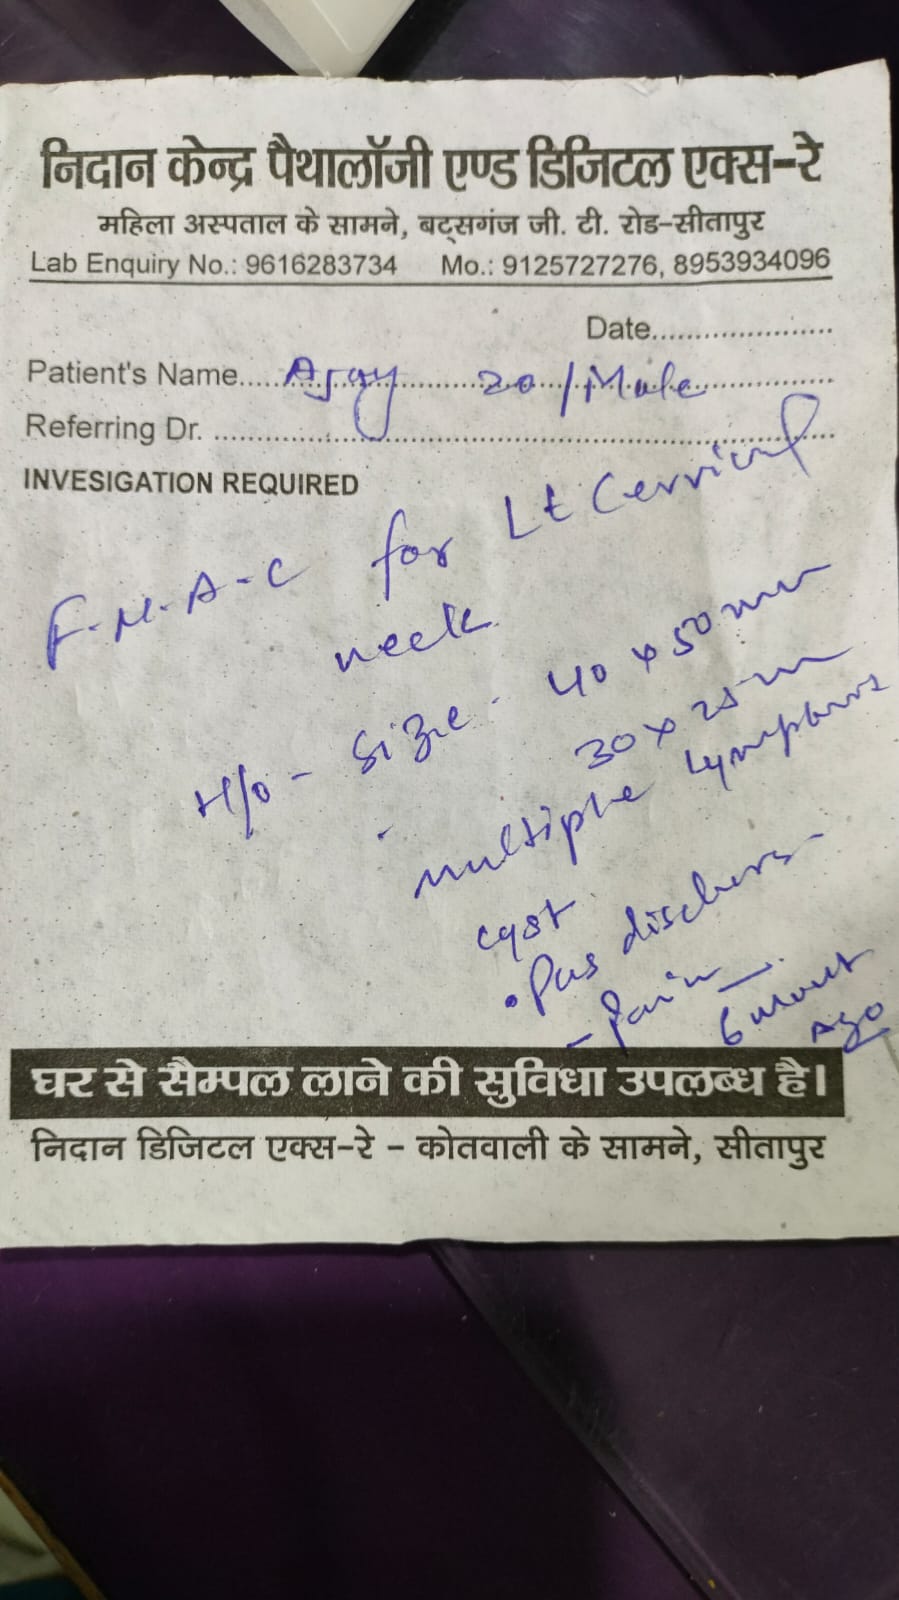 निदान केन्द्र पैथालॉजी एण्ड डिजिटल एक्स-रे
महिला अस्पताल के सामने, बट्सगंज जी. टी. रोड-सीतापुर
Lab Enquiry No.: 9616283734 Mo.: 9125727276, 8953934096
Date......................
Patient's Name..... Ajay 20/Male
Referring Dr. ......................
INVESIGATION REQUIRED
F.N.A.C for Lt Cervical
neck
H/o - Size - 40 x 50 mm
30 x 25 m
- multiple
cyst
• Pus
- Pain 6
Ago
घर से सैम्पल लाने की सुविधा उपलब्ध है।
निदान डिजिटल एक्स-रे - कोतवाली के सामने, सीतापुर